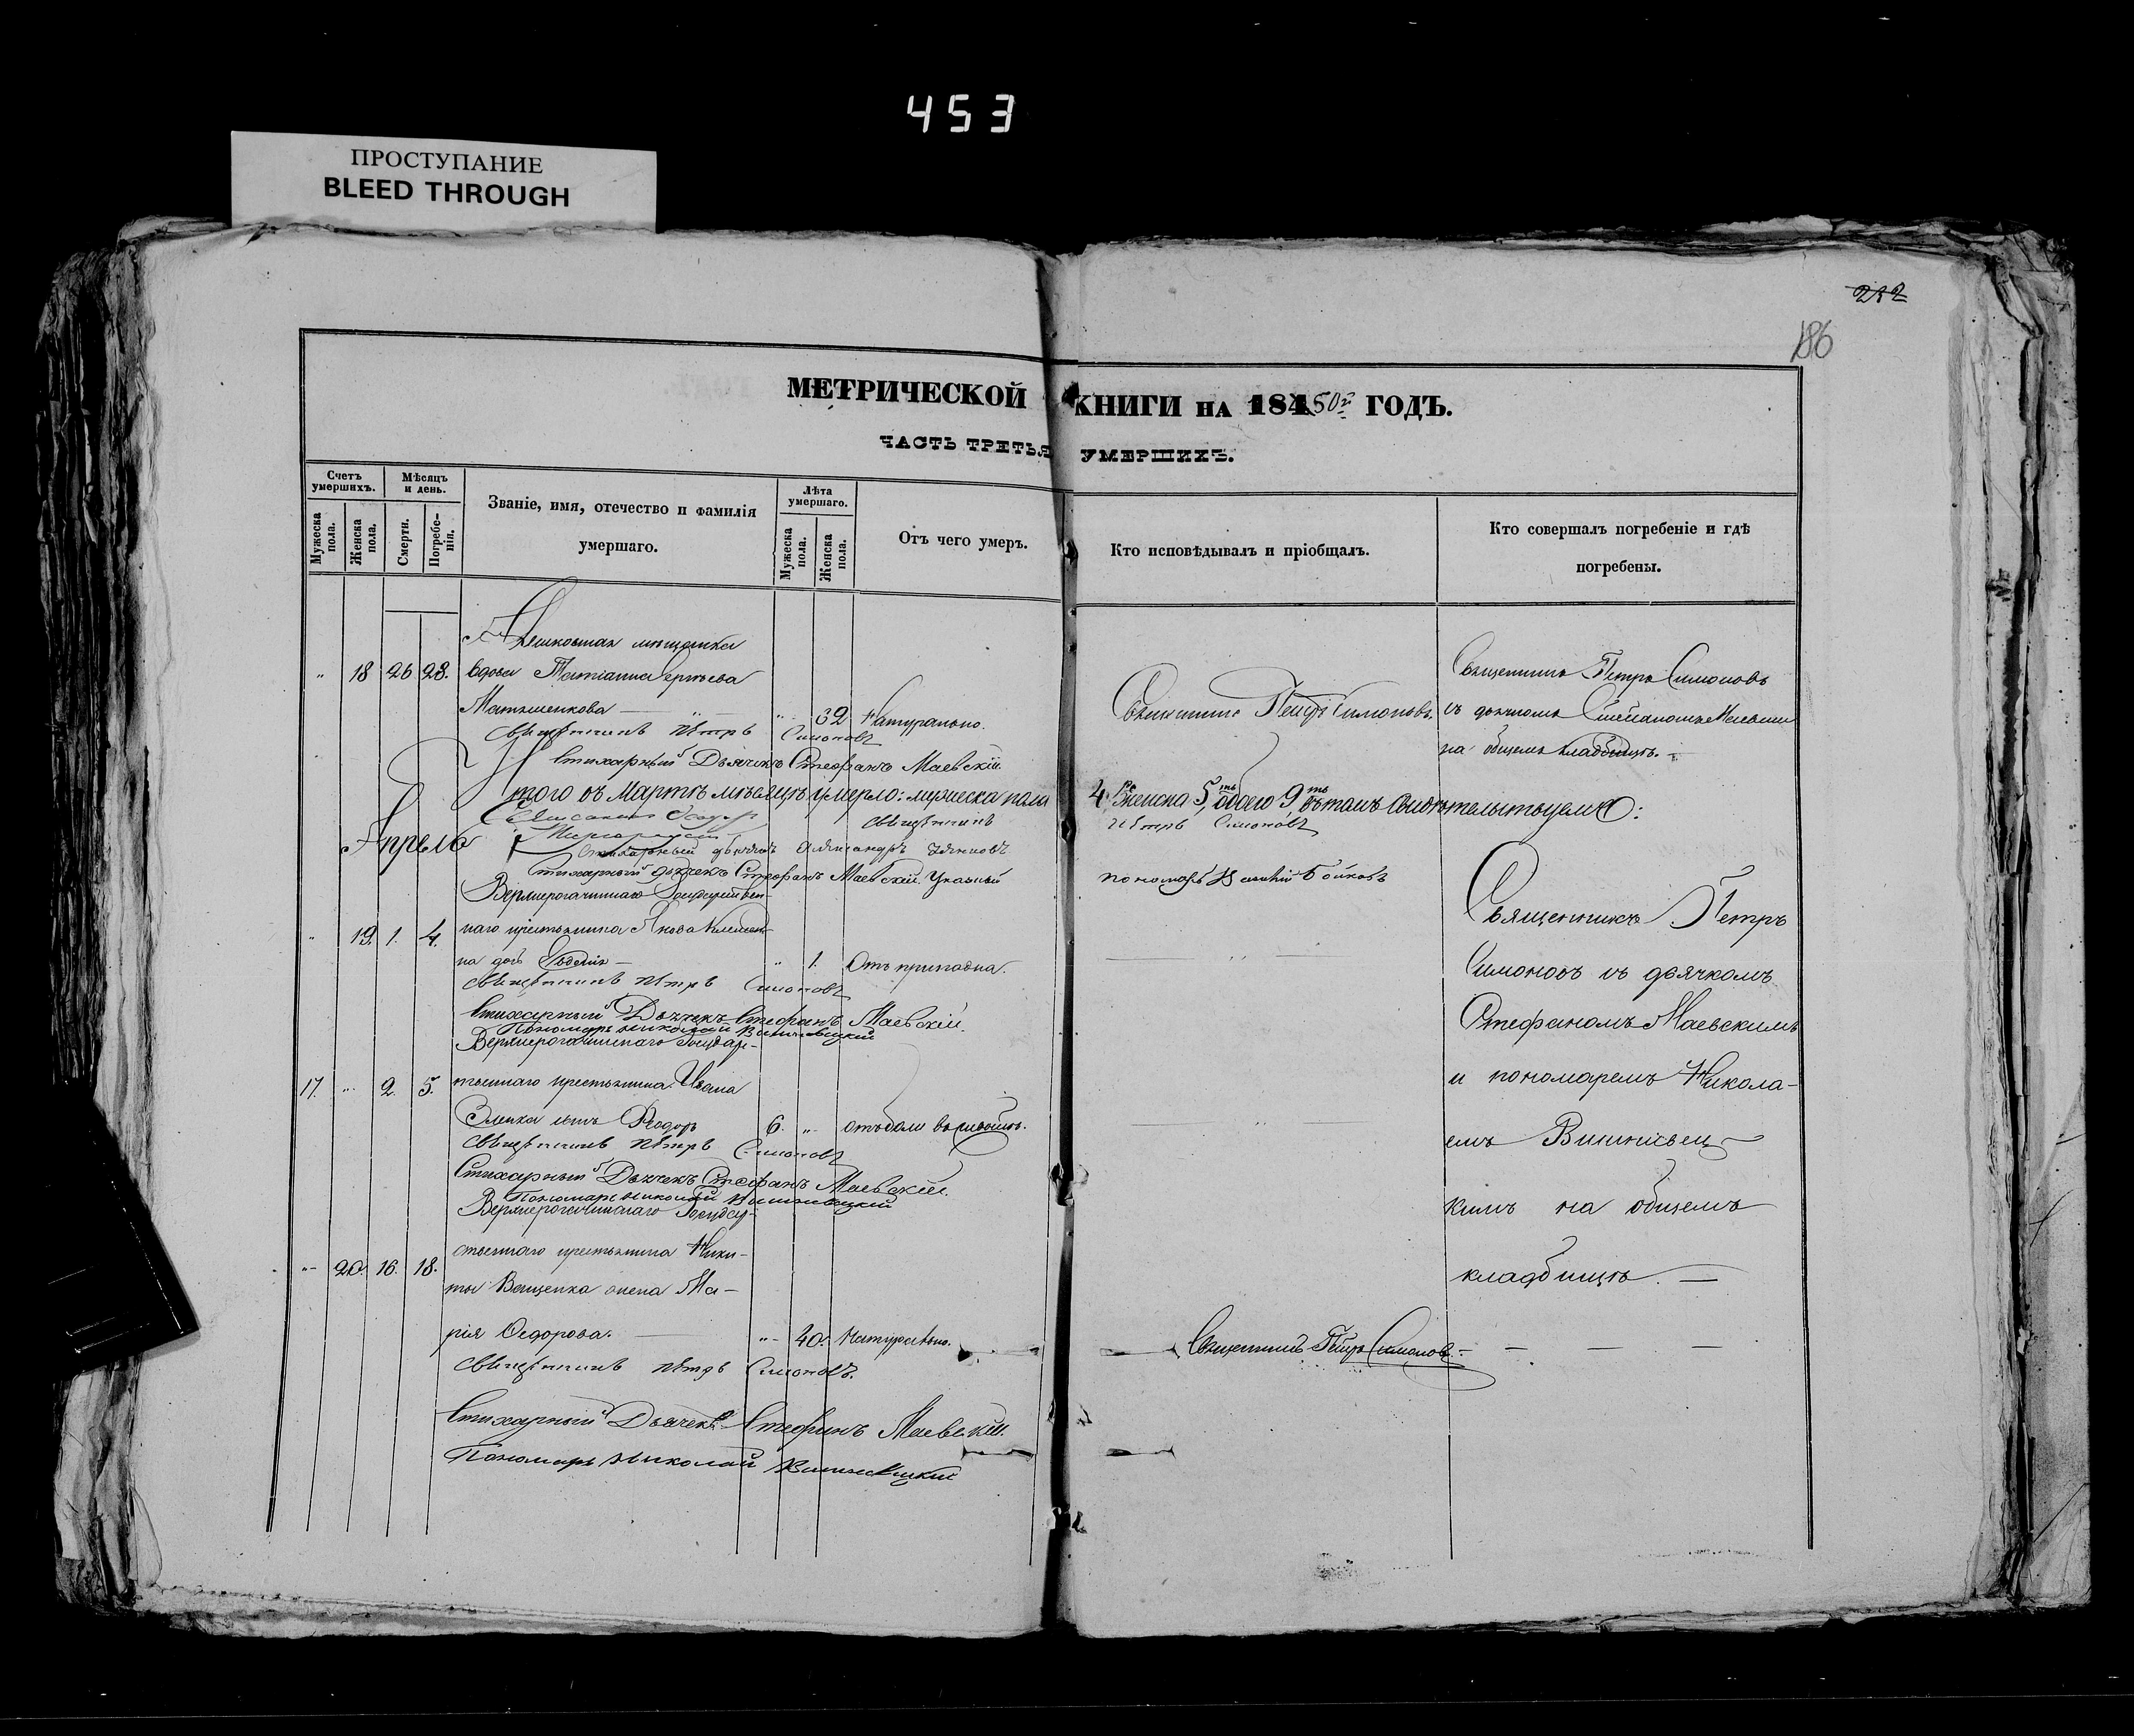 453
ПРОСТУПАНИЕ
BLEED THROUGH
232
186
МЕТРИЧЕСКОЙ КНИГИ НА 18450й ГОДЪ.
ЧАСТЬ ТРЕТЬЯ УМЕРШИХЪ.
Счетъ умершихъ.
Мужеска пола.
Женска пола.
Мѣсяцъ и день.
Смерти.
Погребенія.
Званіе, имя, отечество и фамилія умершаго.
Лѣта умершаго.
Мужеска пола.
Женска пола.
Отъ чего умеръ.
Кто исповѣдывалъ и пріобщалъ.
Кто совершалъ погребеніе и гдѣ погребены.
мѣщанка
" 18 26 28. вдова Татіанна Сергѣева
" 32 Натурально.
Священникъ Петръ Симоновъ
Священникъ Петръ Симоновъ
съ дьячкомъ Стефаномъ Маевскимъ
на общемъ кладбищѣ.
Священникъ Петръ Симоновъ
Стихарный Дьячекъ Стефанъ Маевскій.
Итого въ Мартѣ мѣсяцѣ умерло: мужеска пола 4, женска 5, обоего 9, въ томъ свидѣтельствуемъ:
Священникъ Петръ Симоновъ
Стихарный дьячокъ Александръ
Стихарный дьячекъ Стефанъ Маевскій. Указный пономарь Бойковъ
Апрель
Верхнерогачинскаго Государствен-
" 19. 1. 4. наго крестьянина Якова
на дочь " 1. Отъ припадка.
Священникъ Петръ Симоновъ
Стихарный Дьячекъ Стефанъ Маевскій.
Пономарь Николай Вишневецкій
Верхнерогачинскаго Государ-
17. " 2. 5. ственнаго крестьянина Ивана
сынъ Ѳеодоръ 6. "
Священникъ Петръ Симоновъ
Стихарный Дьячекъ Стефанъ Маевскій.
Пономарь Николай Вишневецкій
Верхнерогачинскаго Государ-
" 20. 16. 18. ственнаго крестьянина Ники-
ты Ващенка жена Ма-
рія Ѳедорова. " 40. Натурально.
Священникъ Петръ Симоновъ
Священникъ Петръ Симоновъ.
Стихарный Дьячекъ Стефанъ Маевскій.
Пономарь Николай Вишневецкій
Священникъ Петръ
Симоновъ съ дьячкомъ
Стефаномъ Маевскимъ
и пономаремъ Никола-
емъ Вишневец-
кимъ на общемъ
кладбищѣ.